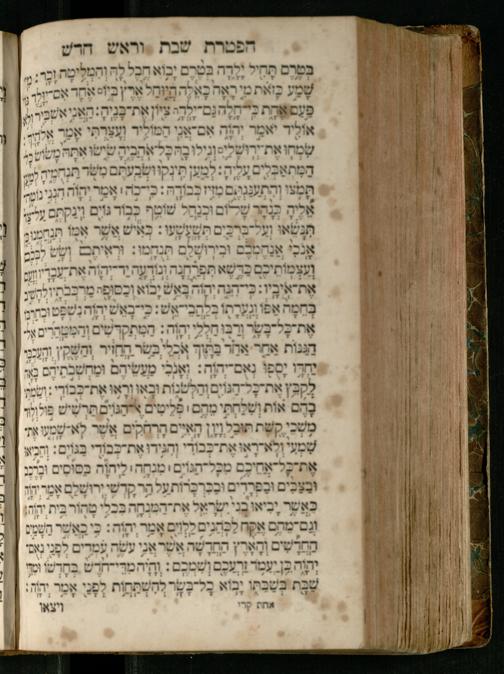 הפטרת שבת וראש חדש
בְּטֶרֶם תָּחִיל יָלָדָה בְּטֶרֶם יָבוֹא חֵבֶל לָהּ וְהִמְלִיטָה זָכָר: מִי־
שָׁמַע כָּזֹאת מִי רָאָה כָּאֵלֶּה הֲיוּחַל אֶרֶץ בְּיוֹם אֶחָד אִם־יִוָּלֵד גּוֹי
פַּעַם אֶחָת כִּי־חָלָה גַּם־יָלְדָה צִיּוֹן אֶת־בָּנֶיהָ: הַאֲנִי אַשְׁבִּיר וְלֹא
אוֹלִיד יֹאמַר יְהוָֹה אִם־אֲנִי הַמּוֹלִיד וְעָצַרְתִּי אָמַר אֱלֹהָיִךְ:
שִׂמְחוּ אֶת־יְרוּשָׁלַיִם וְגִילוּ בָהּ כָּל־אֹהֲבֶיהָ שִׂישׂוּ אִתָּהּ מָשׂוֹשׂ כָּל־
הַמִּתְאַבְּלִים עָלֶיהָ: לְמַעַן תִּינְקוּ וּשְׂבַעְתֶּם מִשֹּׁד תַּנְחֻמֶיהָ לְמַעַן
תָּמֹצּוּ וְהִתְעַנַּגְתֶּם מִזִּיז כְּבוֹדָהּ: כִּי־כֹה אָמַר יְהוָֹה הִנְנִי נוֹטֶה־
אֵלֶיהָ כְּנָהָר שָׁלוֹם וּכְנַחַל שׁוֹטֵף כְּבוֹד גּוֹיִם וִינַקְתֶּם עַל־צַד
תִּנָּשֵׂאוּ וְעַל־בִּרְכַּיִם תְּשָׁעֳשָׁעוּ: כְּאִישׁ אֲשֶׁר אִמּוֹ תְּנַחֲמֶנּוּ כֵּן
אָנֹכִי אֲנַחֶמְכֶם וּבִירוּשָׁלִַם תְּנֻחָמוּ: וּרְאִיתֶם וְשָׂשׂ לִבְּכֶם
וְעַצְמוֹתֵיכֶם כַּדֶּשֶׁא תִפְרַחְנָה וְנוֹדְעָה יַד־יְהוָֹה אֶת־עֲבָדָיו וְזָעַם
אֶת־אֹיְבָיו: כִּי־הִנֵּה יְהוָֹה בָּאֵשׁ יָבוֹא וְכַסּוּפָה מַרְכְּבֹתָיו לְהָשִׁיב
בְּחֵמָה אַפּוֹ וְגַעֲרָתוֹ בְּלַהֲבֵי־אֵשׁ: כִּי־בָאֵשׁ יְהוָֹה נִשְׁפָּט וּבְחַרְבּוֹ
אֶת־כָּל־בָּשָׂר וְרַבּוּ חַלְלֵי יְהוָֹה: הַמִּתְקַדְּשִׁים וְהַמִּטַּהֲרִים אֶל־
הַגַּנּוֹת אַחַר אַחַד בַּתָּוֶךְ אֹכְלֵי בְּשַׂר הַחֲזִיר וְהַשֶּׁקֶץ וְהָעַכְבָּר
יַחְדָּו יָסֻפוּ נְאֻם־יְהוָֹה: וְאָנֹכִי מַעֲשֵׂיהֶם וּמַחְשְׁבֹתֵיהֶם בָּאָה
לְקַבֵּץ אֶת־כָּל־הַגּוֹיִם וְהַלְּשֹׁנוֹת וּבָאוּ וְרָאוּ אֶת־כְּבוֹדִי: וְשַׂמְתִּי
בָהֶם אוֹת וְשִׁלַּחְתִּי מֵהֶם פְּלֵיטִים אֶל־הַגּוֹיִם תַּרְשִׁישׁ פּוּל וְלוּד
מֹשְׁכֵי קֶשֶׁת תֻּבַל וְיָוָן הָאִיִּים הָרְחֹקִים אֲשֶׁר לֹא־שָׁמְעוּ אֶת־
שִׁמְעִי וְלֹא־רָאוּ אֶת־כְּבוֹדִי וְהִגִּידוּ אֶת־כְּבוֹדִי בַּגּוֹיִם: וְהֵבִיאוּ
אֶת־כָּל־אֲחֵיכֶם מִכָּל־הַגּוֹיִם מִנְחָה לַיהוָֹה בַּסּוּסִים וּבָרֶכֶב
וּבַצַּבִּים וּבַפְּרָדִים וּבַכִּרְכָּרוֹת עַל הַר קָדְשִׁי יְרוּשָׁלִַם אָמַר יְהוָֹה
כַּאֲשֶׁר יָבִיאוּ בְנֵי יִשְׂרָאֵל אֶת־הַמִּנְחָה בִּכְלִי טָהוֹר בֵּית יְהוָֹה:
וְגַם־מֵהֶם אֶקַּח לַכֹּהֲנִים לַלְוִיִּם אָמַר יְהוָֹה: כִּי כַאֲשֶׁר הַשָּׁמַיִם
הַחֲדָשִׁים וְהָאָרֶץ הַחֲדָשָׁה אֲשֶׁר אֲנִי עֹשֶׂה עֹמְדִים לְפָנַי נְאֻם־
יְהוָֹה כֵּן יַעֲמֹד זַרְעֲכֶם וְשִׁמְכֶם: וְהָיָה מִדֵּי־חֹדֶשׁ בְּחָדְשׁוֹ וּמִדֵּי
שַׁבָּת בְּשַׁבַּתּוֹ יָבוֹא כָל־בָּשָׂר לְהִשְׁתַּחֲוֹת לְפָנַי אָמַר יְהוָֹה:
אחת קרי ויצאו